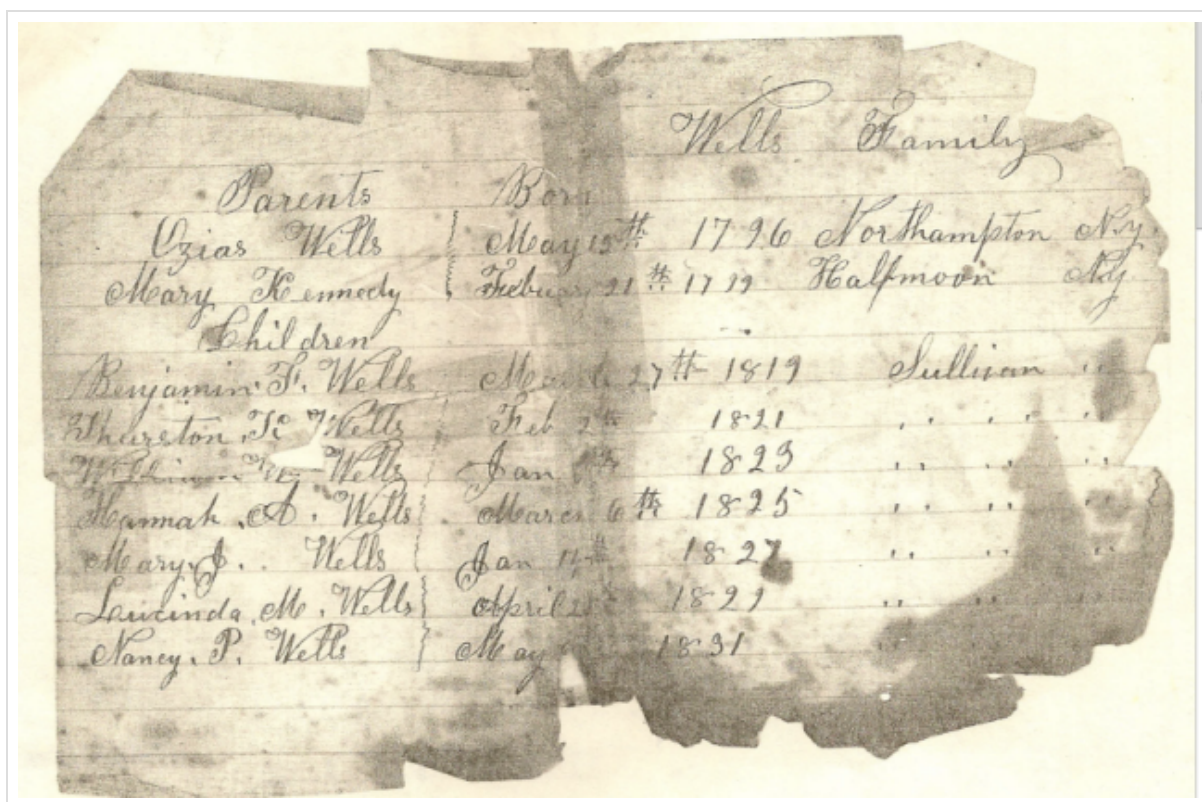 Wells Family
Parents Born
Ozias Wells May 15th 1796 Northampton N.y.
Mary Kennedy Febuary 21th 1799 Halfmoon N.y
Children
Benjamin F. Wells March 27th 1819 Sullivan "
Thurston K Wells Feb 2th 1821 " " "
Wells Jan 1823 " " "
Hannah A. Wells March 6th 1825 " " "
Mary J. Wells Jan 1827 " " "
Lucinda M. Wells April 1829 " " "
Nancy P. Wells May 1831